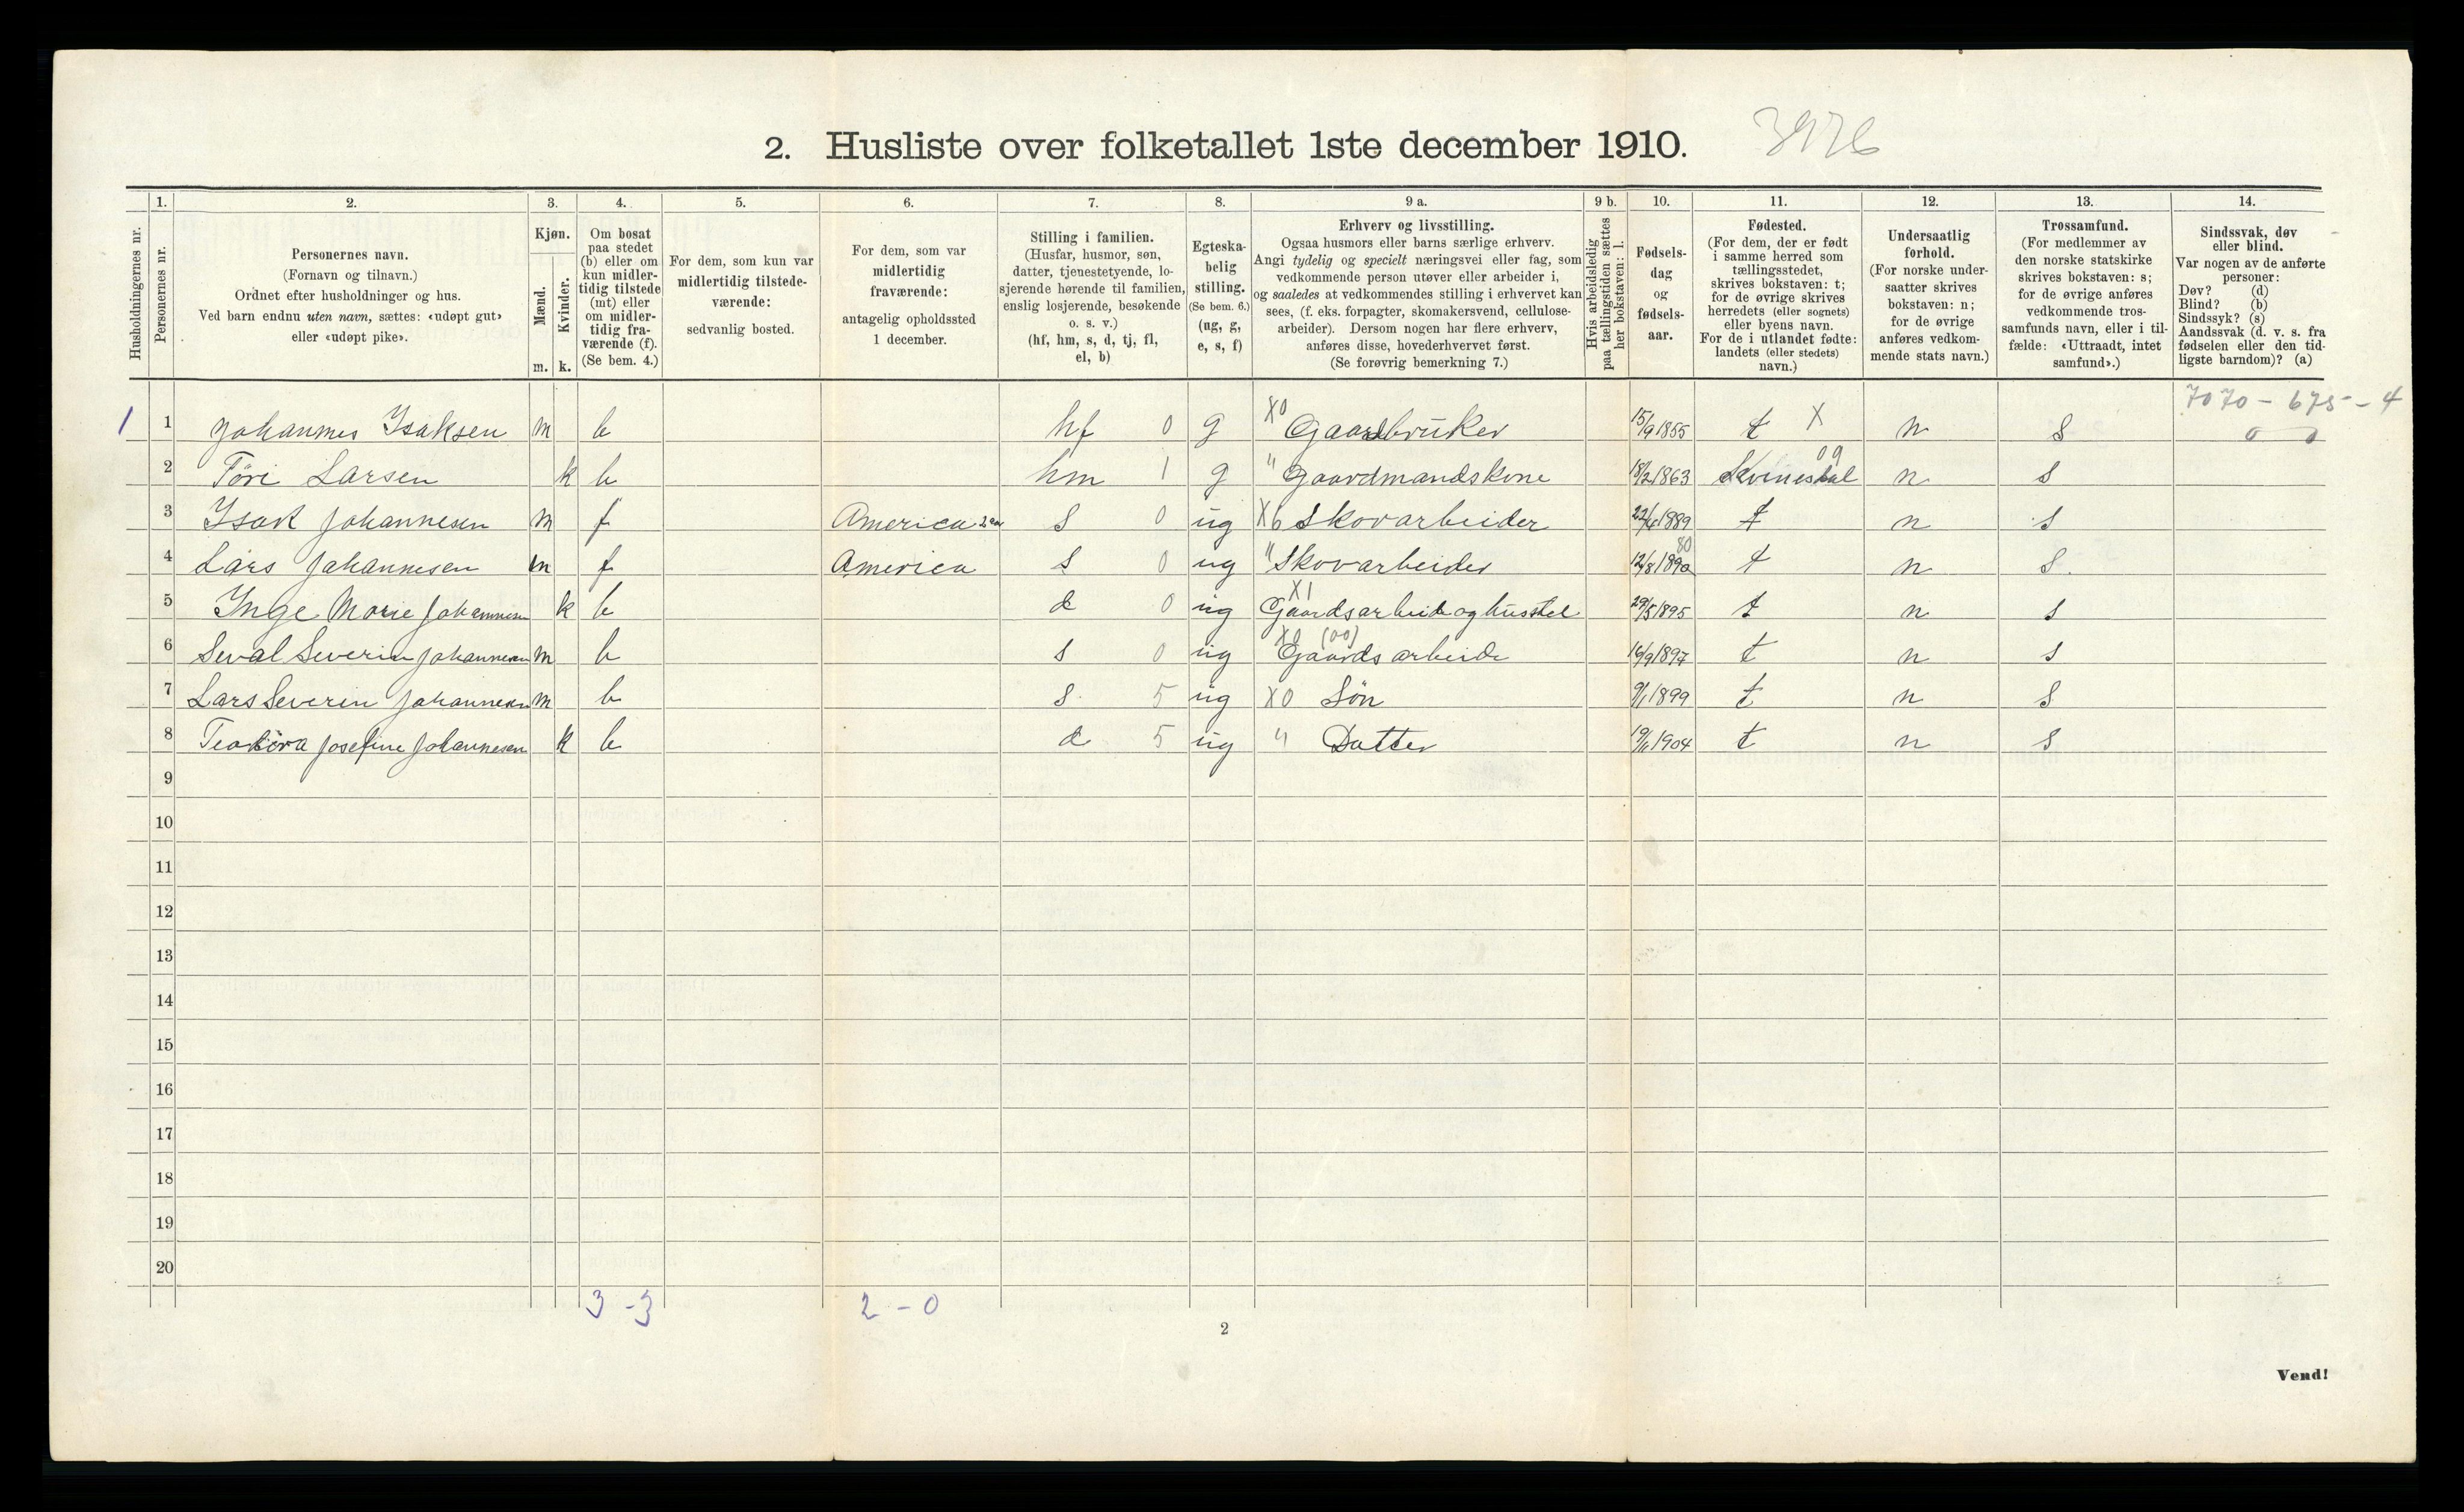 2. Husliste over folketallet 1ste december 1910. 3976
1. 2. 3. 4. 5. 6. 7. 8. 9 a. 9 b. 10. 11. 12. 13. 14.
Husholdningernes nr.
Personernes nr.
Personernes navn.
(Fornavn og tilnavn.)
Ordnet efter husholdninger og hus.
Ved barn endnu uten navn, sættes: «udøpt gut»
eller «udøpt pike».
Kjøn.
Mænd.
Kvinder.
m. k.
Om bosat
paa stedet
(b) eller om
kun midler-
tidig tilstede
(mt) eller
om midler-
tidig fra-
værende (f).
(Se bem. 4.)
For dem, som kun var
midlertidig tilstede-
værende:
sedvanlig bosted.
For dem, som var
midlertidig
fraværende:
antagelig opholdssted
1 december.
Stilling i familien.
(Husfar, husmor, søn,
datter, tjenestetyende, lo-
sjerende hørende til familien,
enslig losjerende, besøkende
o. s. v.)
(hf, hm, s, d, tj, fl,
el, b)
Egteska-
belig
stilling.
(Se bem. 6.)
(ug, g,
e, s, f)
Erhverv og livsstilling.
Ogsaa husmors eller barns særlige erhverv.
Angi tydelig og specielt næringsvei eller fag, som
vedkommende person utøver eller arbeider i,
og saaledes at vedkommendes stilling i erhvervet kan
sees, (f. eks. forpagter, skomakersvend, cellulose-
arbeider). Dersom nogen har flere erhverv,
anføres disse, hovederhvervet først.
(Se forøvrig bemerkning 7.)
Hvis arbeidsledig
paa tællingstiden sættes
her bokstaven: l.
Fødsels-
dag
og
fødsels-
aar.
Fødested.
(For dem, der er født
i samme herred som
tællingsstedet,
skrives bokstaven: t;
for de øvrige skrives
herredets (eller sognets)
eller byens navn.
For de i utlandet fødte:
landets (eller stedets)
navn.)
Undersaatlig
forhold.
(For norske under-
saatter skrives
bokstaven: n;
for de øvrige
anføres vedkom-
mende stats navn.)
Trossamfund.
(For medlemmer av
den norske statskirke
skrives bokstaven: s;
for de øvrige anføres
vedkommende tros-
samfunds navn, eller i til-
fælde: «Uttraadt, intet
samfund».)
Sindssvak, døv
eller blind.
Var nogen av de anførte
personer:
Døv? (d)
Blind? (b)
Sindssyk? (s)
Aandssvak (d. v. s. fra
fødselen eller den tid-
ligste barndom)? (a)
7070 - 675 - 4
0 0
1 1 Johannes Isaksen m b hf 0 g X0 Gaardbruker 15/9 1855 t X n s
2 Töri Larsen k b hm 1 g " Gaardmandskone 18/2 1863 Kvinesdal 09 n s
3 Isak Johannesen m f America s 0 ug X6 Skovarbeider 22/4 1889 t n s
4 Lars Johannesen m f America s 0 ug " Skovarbeider 12/8 1890 80 t n s
5 Inge Marie Johannesen k b d 0 ug X1 Gaardsarbeide og husstel 29/5 1895 t n s
6 Seval Severin Johannesen m b s 0 ug X0 (00) Gaardsarbeide 16/9 1897 t n s
7 Lars Severin Johannesen m b s 5 ug X0 Søn 9/1 1899 t n s
8 Teodöra Josefine Johannesen k b d 5 ug " Datter 19/6 1904 t n s
9
10
11
12
13
14
15
16
17
18
19
20
3 - 3 2 - 0
2
Vend!